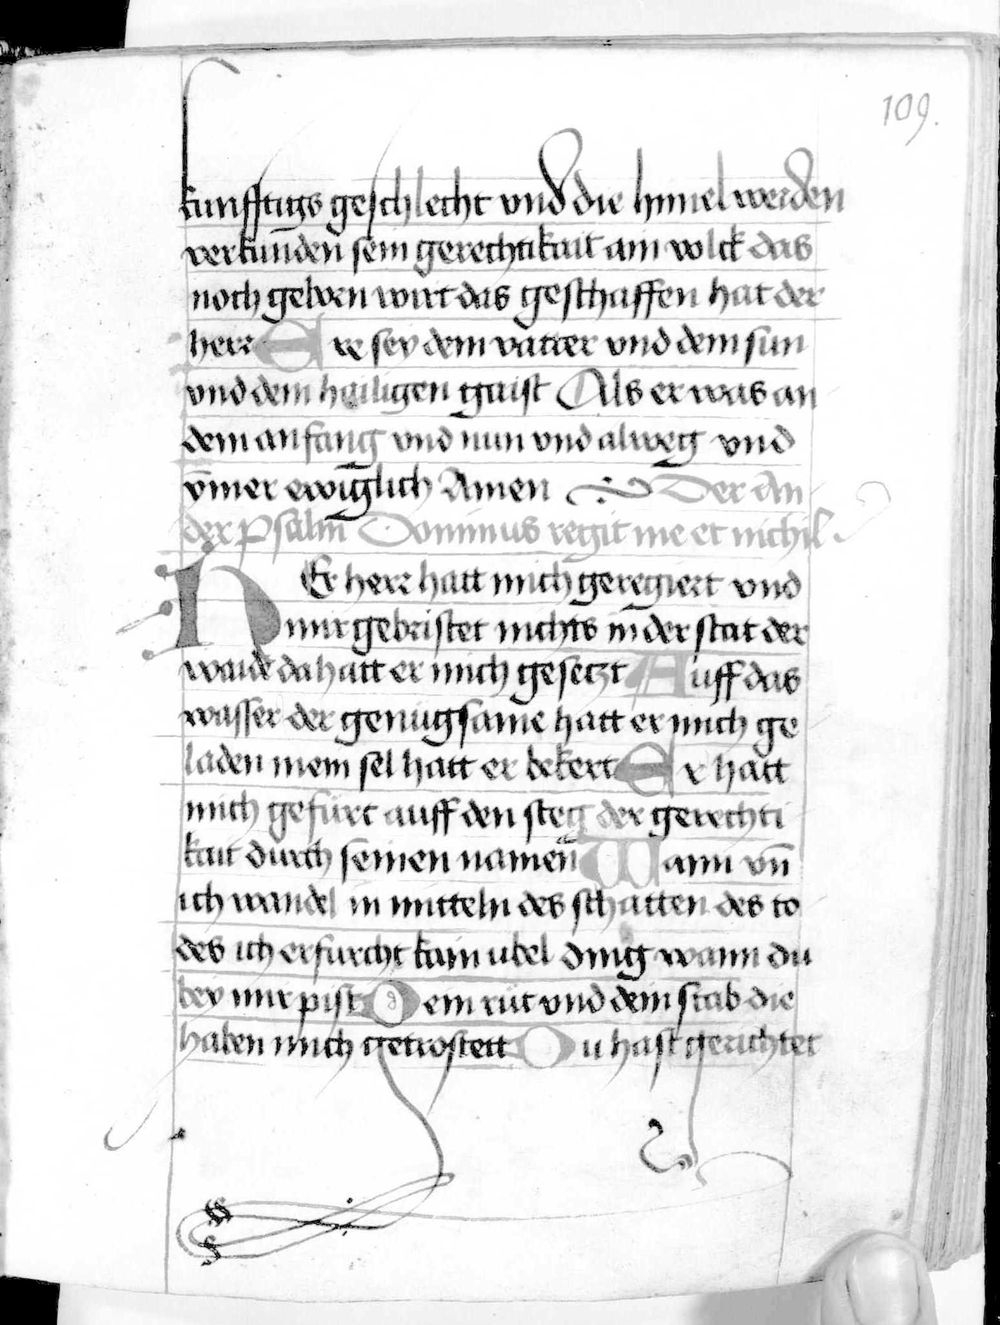 109.
kunfftigs geschlecht vnd die himel werden
verkunden sein gerechtikait am volck das
noch geborn wirt das geschaffen hat der
herr Ere sey dem vatter vnd dem sun
vnd dem hailigen gaist Als er was an
dem anfang vnd nun vnd alweg vnd
ym̄er ewiglich Amen Der An
der psalm Dominus regit me et nichil
DEr herr hatt mich geregiert vnd
mir gebristet nichts in der stat der
waide da hatt er mich gesetzt Auff das
wasser der genugsame hatt er mich ge
laden mein sel hatt er bekert Er hatt
mich gefurt auff den steg der gerechti
kait durch seinen namen Wann vn̄
ich wandel in mitteln des schatten des to
des ich erfurcht kain ubel ding wann du
bey mir pist Dein rut vnd dein stab die
haben mich getrostett Du hast gerichtet